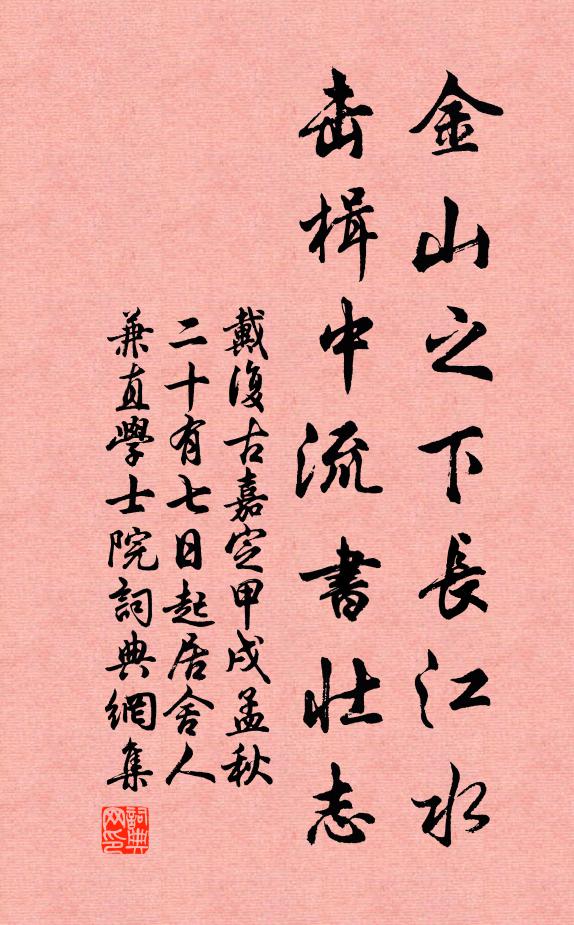 金山之下長江水
击楫中流書壮志
戴復古嘉定甲戌孟秋
二十有七日起居舍人
兼直學士院詞典網集
詞典
网印